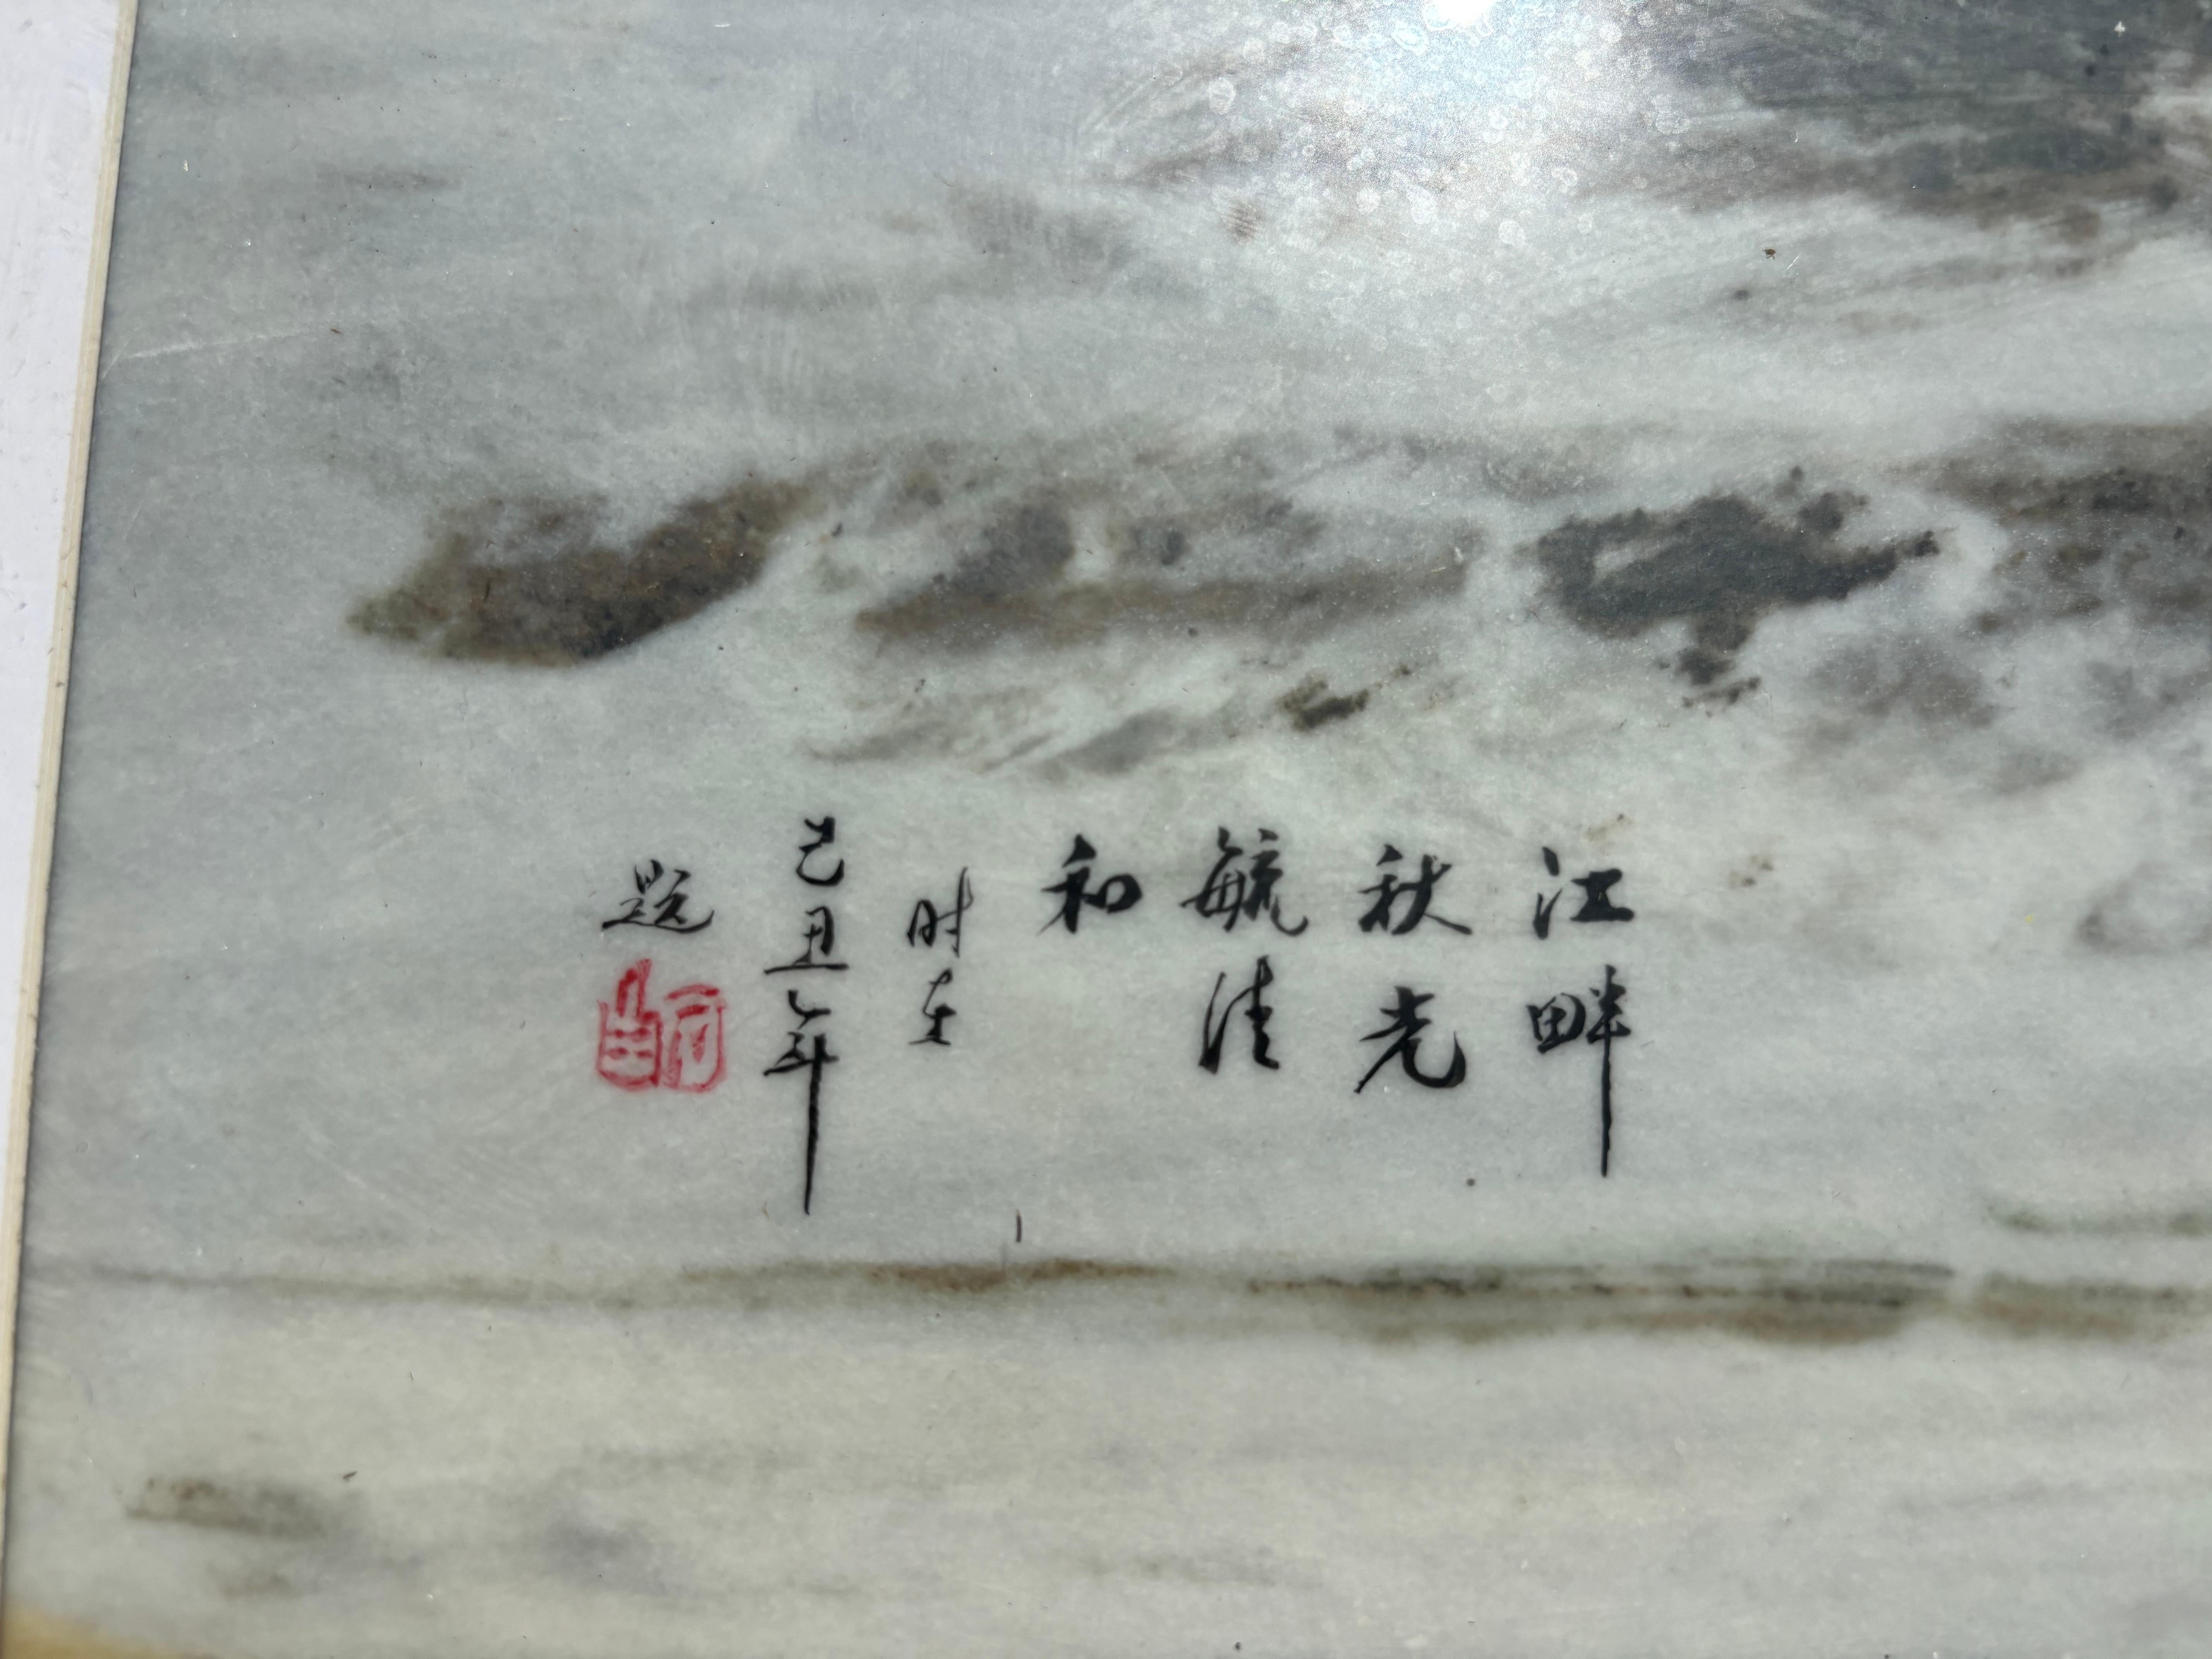 江畔
秋光
毓清
和
时在
己丑年
题